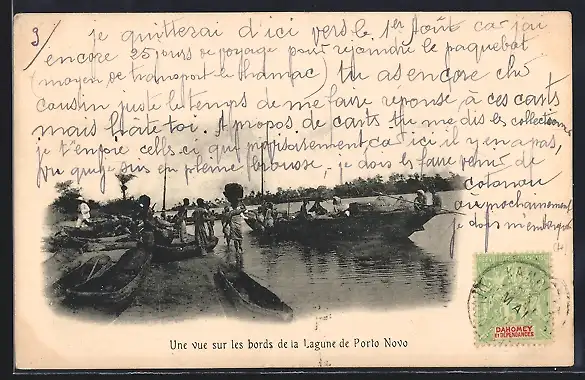 3/
je quitterai d'ici vers le 1er Août car j'ai
encore 25 jours de voyage pour rejoindre le paquebot
(moyen de transport le Hamac) tu as encore cher
cousin juste le temps de me faire réponse à ces carts
mais hâte toi. A propos de carts tu me dis les collectionner
je t'envoie celles ci qui paraissement, car ici il y en a pas,
vu que je suis en pleine brousse, je dois les faire venir de
cotonou
où prochainement
je dois m'embarquer
Une vue sur les bords de la Lagune de Porto Novo
DAHOMEY
ET DÉPENDANCES